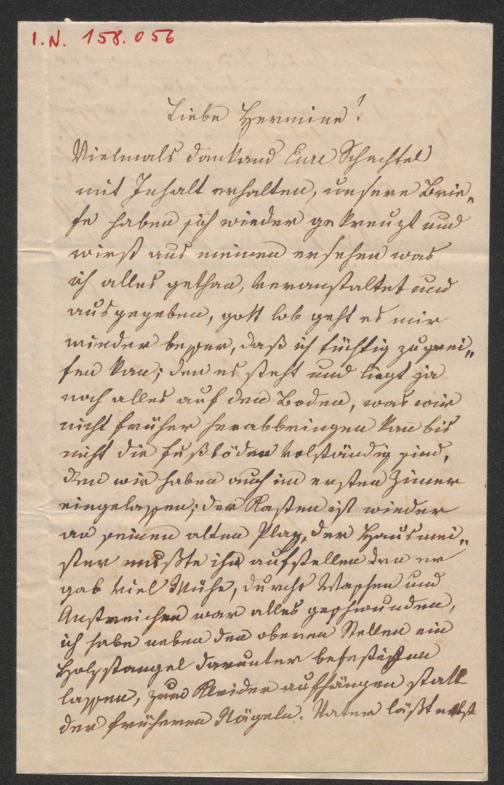 I.N. 158.056
Liebe Hermine!
Vielmals dankend Eure Schachtel
mit Inhalt erhalten, unsere Brie-
fe haben sich wieder gekreuzt und
wirst aus meinen ersehen was
ich alles gethan, veranstaltet und
ausgegeben, gott lob geht es mir
wieder besser, daß ich tüchtig zugrei-
fen kan; den es steht und liegt ja
noch alles auf den Boden, was wir
nicht früher herabbringen kan bis
nicht die Fußböden volständig sind,
den wir haben auch im ersten Zimer
eingelassen; der Kasten ist wieder
an seinen alten Platz, der Hausmei-
ster mußte ihn aufstellen den er
gab viel Mühe, durchs Waschen und
Anstreichen war alles geschwunden,
ich habe neben den oberen Stellen ein
Holzstangel darunter befestigen
lassen, zum Kleider aufhängen statt
der früheren Nägeln. Vater läßt